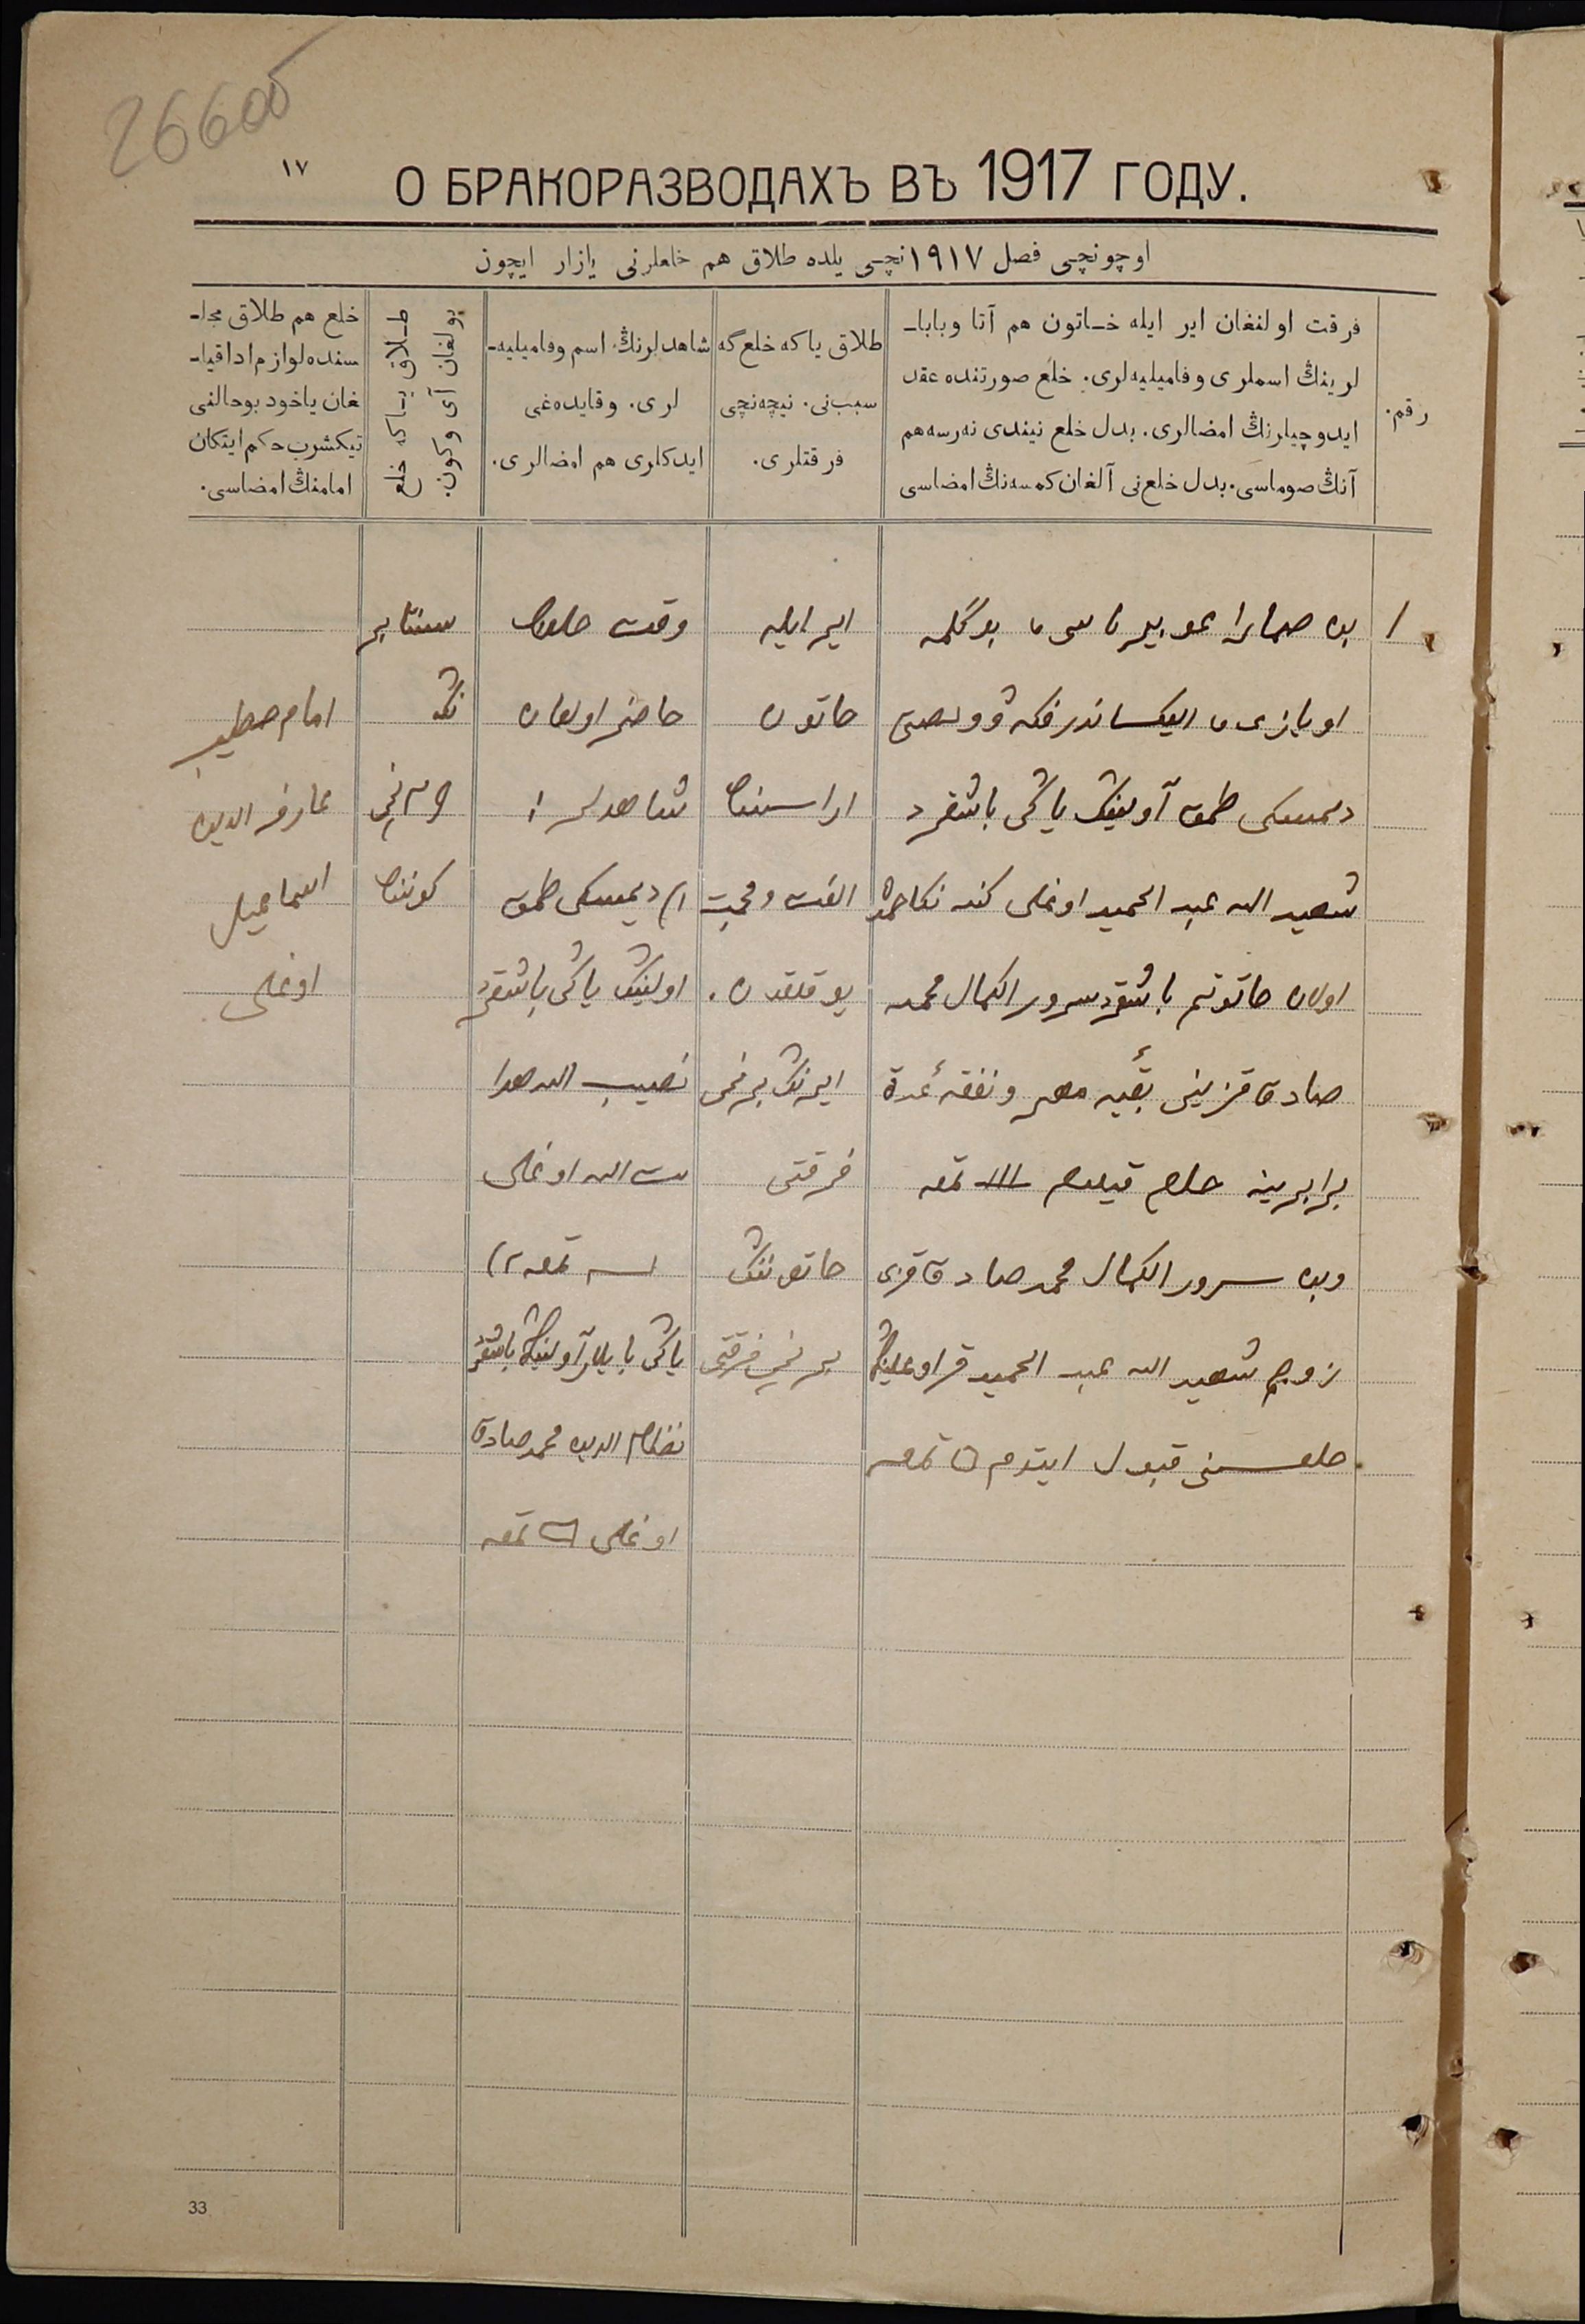 26605
١٧
О БРАКОРАЗВОДАХЪ ВЪ 1917 ГОДУ.
اوچونچی فصل ١٩١٧نچی یلده طلاق هم خلعلرنی یازار ایچون
رقم.
فرقت اولنغان ایر ایله خاتون هم آتا وبابا-
لرینڭ اسملری وفامیلیه‌لری. خلع صورتنده عقد
ایدوچیلرنڭ امضالری. بدل خلع نیندی نه‌رسه هم
آنڭ صوماسی. بدل خلع‌نی آلغان کمسه‌نڭ امضاسی
طلاق یاکه خلع گه
سببنی. نیچه‌نچی
فرقتلری.
شاهدلرنڭ اسم وفامیلیه-
لری. وقایده‌غی
ایدکلری هم امضالری.
طلاق یاکه خلع
بولغان آی وکون.
خلع هم طلاق مجل-
سنده لوازم ادا قیا-
غان یاخود بوحالنی
تیکشرب حکم ایتکان
امامنڭ امضاسی.
١
اویازی
آولینڭ یاڭی باشقرد
شهید الله عبد الحمید اوغلی
اولان خاتونم باشقرد سرور الکمال محمد
صادق قزینی بقیه مهر ونفقهٔ عدة
برابرینه خلع قیلدم تمغه
وبن سرور الکمال محمد صادق قزی
زوجم شهید الله عبد الحمید اوغلینڭ
خلعسنی قبول ایتدم تمغه
ایر ایله
خاتون
اراسنده
الفت ومحبت
یوقلقدن.
ایرنڭ برنچی
فرقتی
خاتوننڭ
برنچی فرقتی
وقت خلعده
حاضر اولغان
شاهدلر:
١)
اولینڭ یاڭی باشقرد
نصیب الله هدا
یت الله اوغلی
تمغه ٢)
یاڭی آولینڭ باشقرد
نظام الدین محمد صادق
اوغلی تمغه
سنتابر
نڭ
نچی
کوننده
امام خطیب
عارف الدین
اسماعیل
اوغلی
33